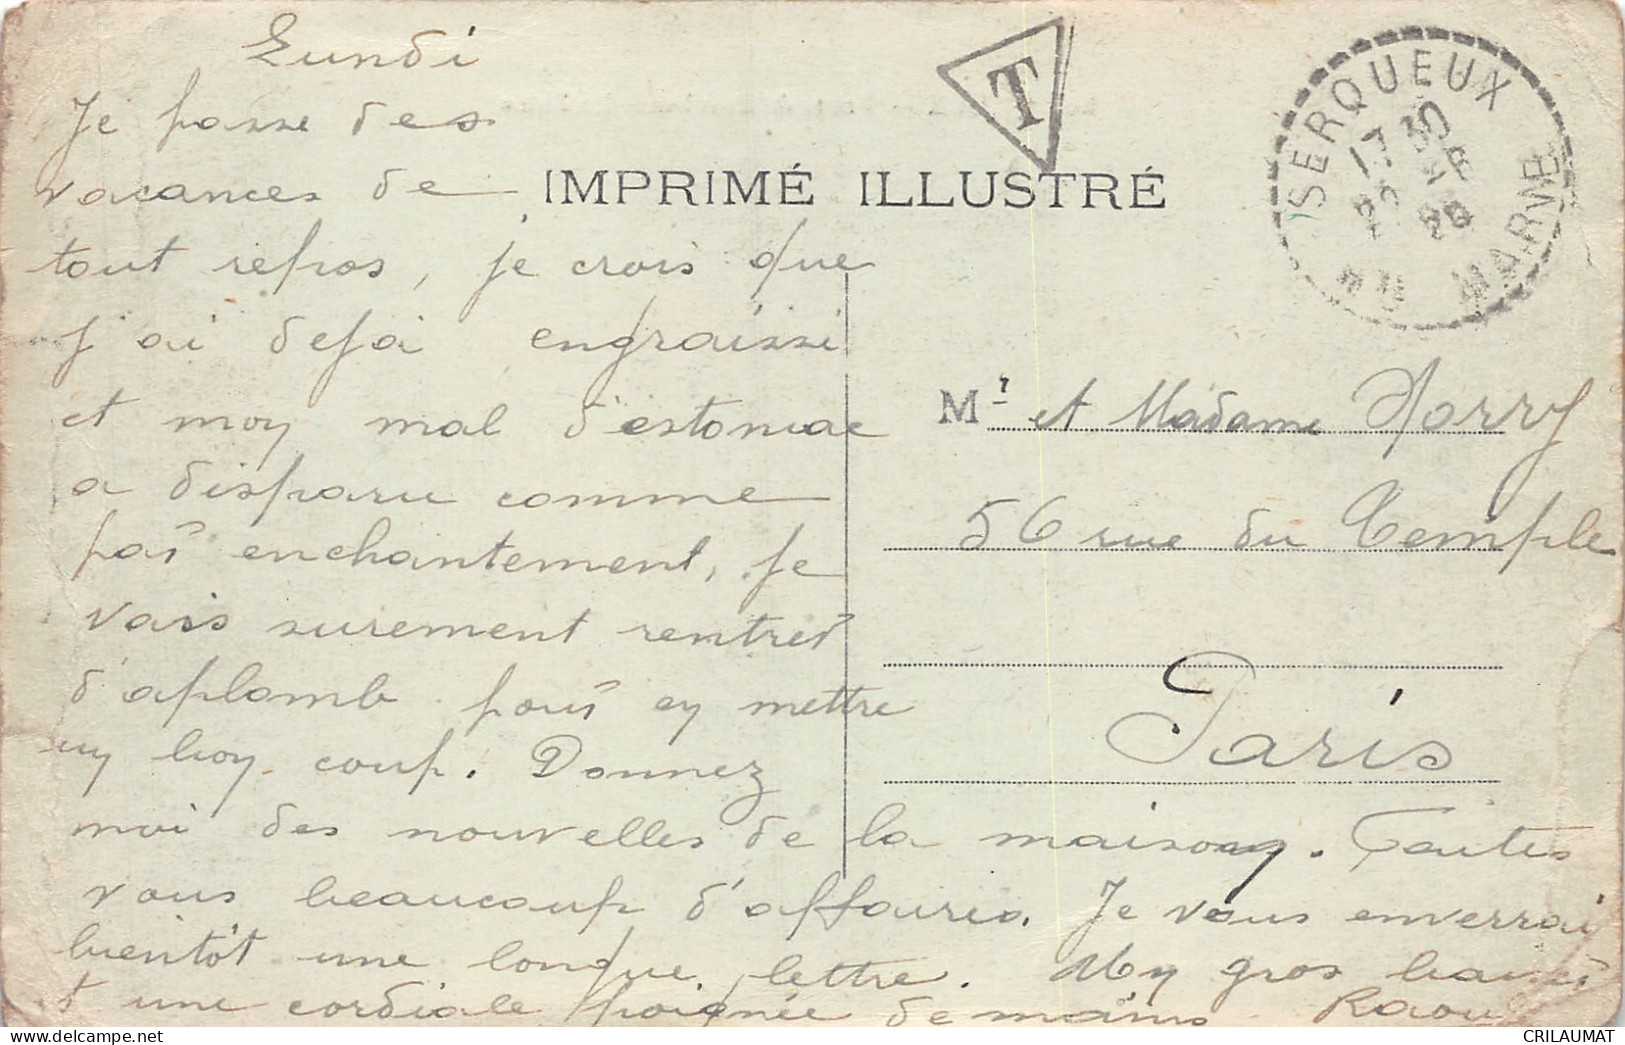 Lundi
Je passe des
vacances de
tout repos, je crois que
j'ai deja engraissi
et moy mal d'estomac
a disparu comme
par enchantement, je
vais surement rentrer
d'aplomb pour ey mettre
uy boy coup. Donnez
moi des nouvelles de la maison. Faites
vous beaucoup d'affaires. Je vous enverrai
bientôt une longue lettre. Uy gros baiser
et une cordiale poignée de mains Raoul
T
IMPRIMÉ ILLUSTRÉ
SERQUEUX
17 30
20
Hte MARNE
Mr et Madame Norry
56 rue du Temple
Paris
CRILAUMAT